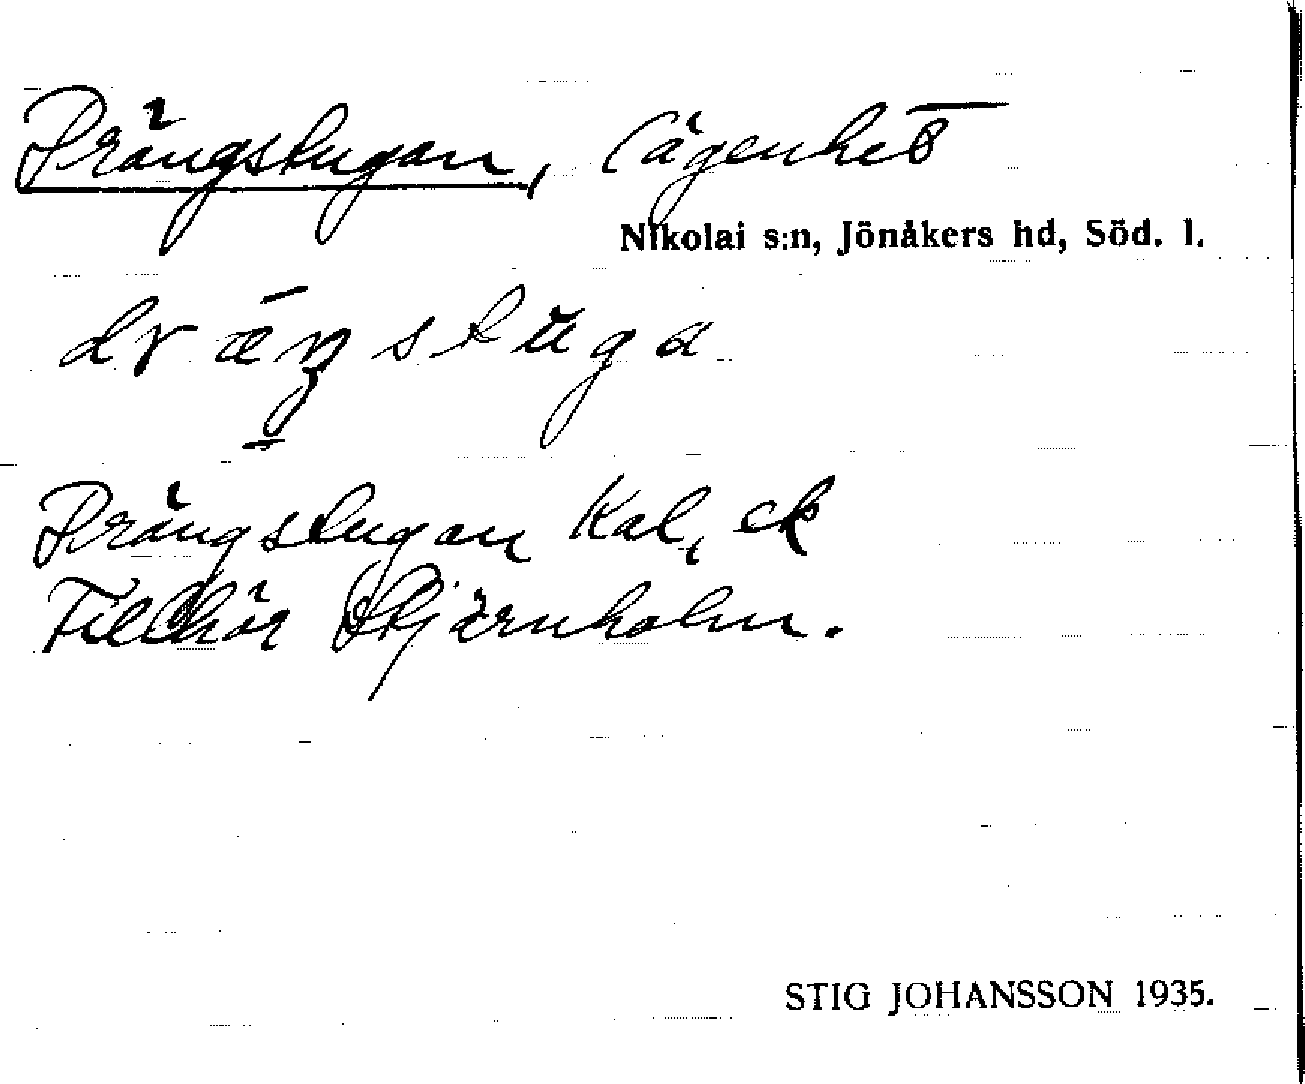 Drängstugan, lägenhet
Nikolai s:n, Jönåkers hd, Söd. l.
dræŋstuga
Drängstugan Kal, ek
Tillhör Stjärnholm.
STIG JOHANSSON 1935.